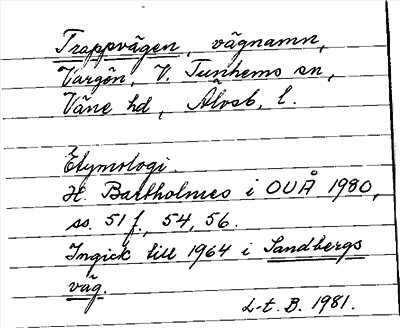 Trappvägen, vägnamn,
Vargön, V. Tunhems sn,
Väne hd, Älvsb. l.
Etymologi.
H. Bartholmes i OUÅ 1980,
ss. 51 f., 54, 56.
Ingick till 1964 i Sandbergs
väg.
L-t. B. 1981.